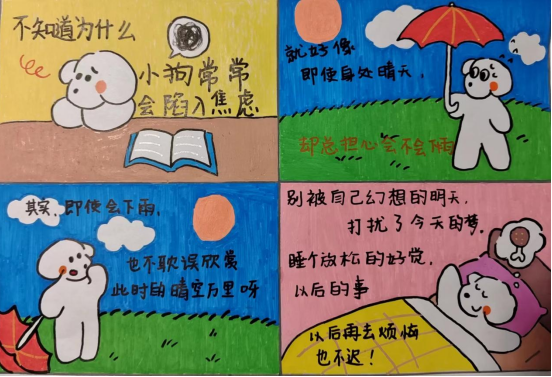 不知道为什么
小狗常常
会陷入焦虑
就好像
即使身处晴天,
却总担心会不会下雨
其实,即使会下雨,
也不耽误欣赏
此时的晴空万里呀
别被自己幻想的明天,
打扰了今天的梦。
睡个放松的好觉,
以后的事
以后再去烦恼
也不迟!